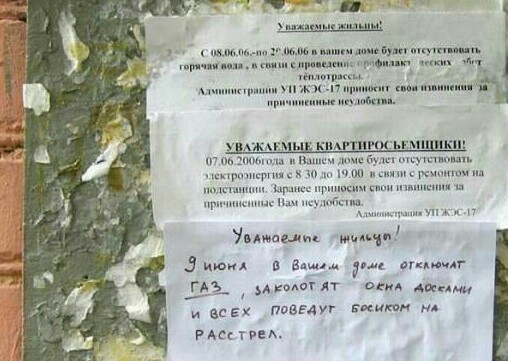 Уважаемые жильцы!
С 08.06.06.-по 2 .06.06 в вашем доме будет отсутствовать
горячая вода , в связи с проведение профилакт ческих работ
теплотрассы.
Администрация УП ЖЭС-17 приносит свои извинения за
причиненные неудобства.
УВАЖАЕМЫЕ КВАРТИРОСЬЕМЩИКИ!
07.06.2006года в Вашем доме будет отсутствовать
электроэнергия с 8 30 до 19.00 в связи с ремонтом на
подстанции. Заранее приносим свои извинения за
причиненные Вам неудобства.
Администрация УП ЖЭС-17
Уважаемые жильцы!
9 июня в Вашем доме отключат
ГАЗ, ЗАКОЛОТЯТ ОКНА ДОСКАМИ
И ВСЕХ ПОВЕДУТ БОСИКОМ НА
РАССТРЕЛ.